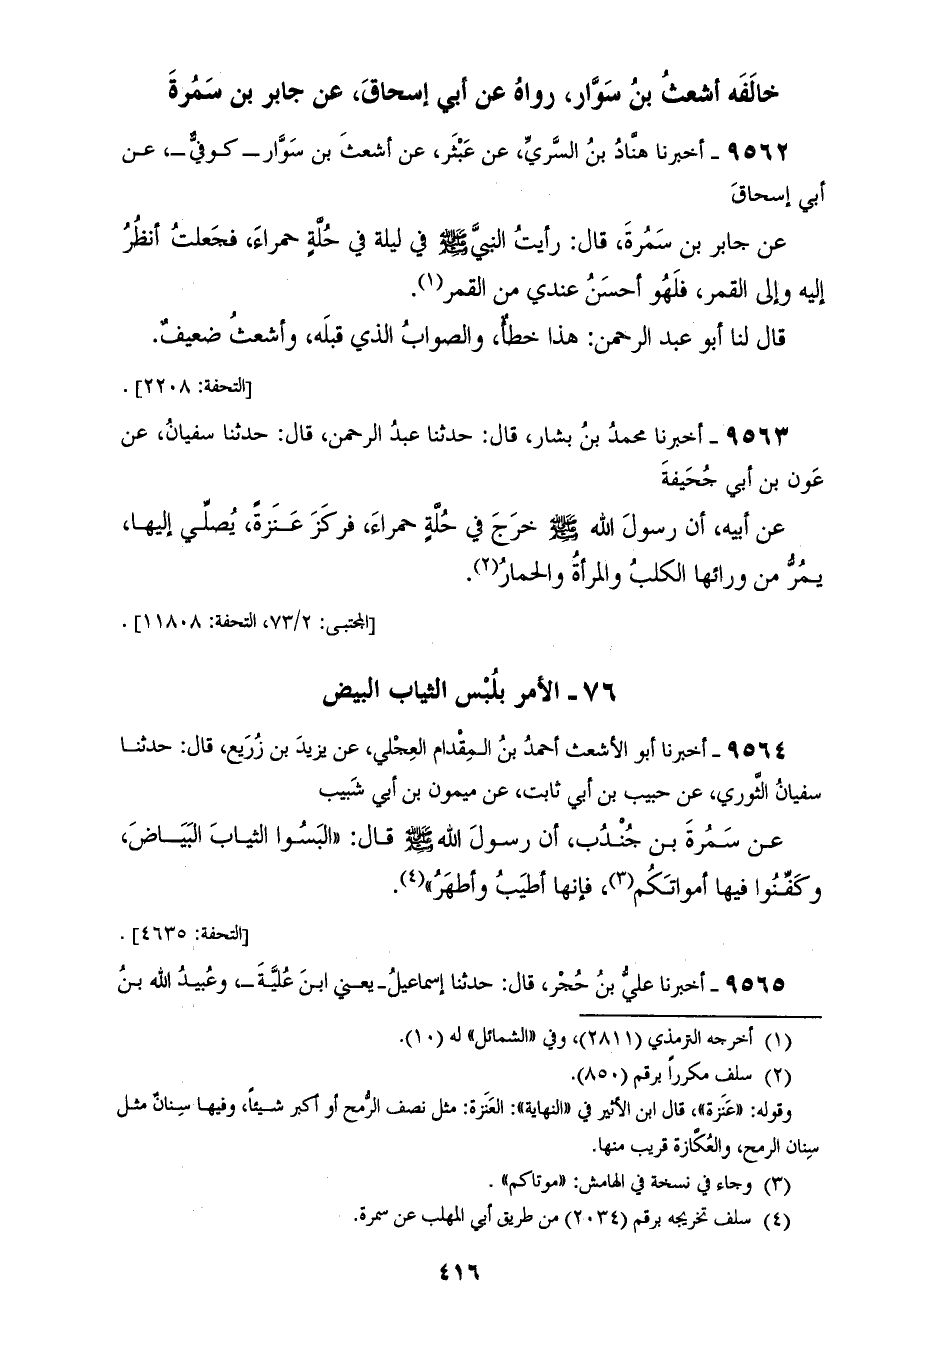 خالَفَه أشعثُ بنُ سَوَّار، رواهُ عن أبي إسحاقَ، عن جابر بن سَمُرةَ
٩٥٦٢ ـ أخبرنا هنَّادُ بنُ السَّريِّ، عن عَبْثَر، عن أشعثَ بن سَوَّار ــ كوفيٌّ ــ، عن
أبي إسحاقَ
عن جابر بن سَمُرةَ، قال: رأيتُ النبيَّ ﷺ في ليلة في حُلَّةٍ حمراءَ، فجَعلتُ أنظُرُ
إليه وإلى القمر، فلَهُو أحسَنُ عندي من القمر(١).
قال لنا أبو عبد الرحمن: هذا خطأٌ، والصوابُ الذي قبلَه، وأشعثُ ضعيفٌ.
[التحفة: ٢٢٠٨] .
٩٥٦٣ ـ أخبرنا محمدُ بنُ بشار، قال: حدثنا عبدُ الرحمن، قال: حدثنا سفيانُ، عن
عَون بن أبي جُحَيفةَ
عن أبيه، أن رسولَ الله ﷺ خرَجَ في حُلَّةٍ حمراءَ، فركَزَ عَنَزةً، يُصلِّي إليها،
يمُرُّ من ورائها الكلبُ والمرأةُ والحمارُ(٢).
[المجتبى: ٧٣/٢، التحفة: ١١٨٠٨] .
٧٦ ـ الأمر بلُبْس الثياب البيض
٩٥٦٤ ـ أخبرنا أبو الأشعث أحمدُ بنُ المِقْدام العِجْلي، عن يزيدَ بن زُرَيع، قال: حدثنا
سفيانُ الثَّوري، عن حبيب بن أبي ثابت، عن ميمون بن أبي شَبيب
عن سَمُرةَ بن جُنْدُب، أن رسولَ الله ﷺ قال: «البَسُوا الثيابَ البَيَاضَ،
وكفِّنُوا فيها أمواتَكُم(٣)، فإنها أطيَبُ وأطهَرُ»(٤).
[التحفة: ٤٦٣٥] .
٩٥٦٥ ـ أخبرنا عليُّ بنُ حُجْر، قال: حدثنا إسماعيلُ ـ يعني ابنَ عُليَّةَ ــ، وعُبيدُ الله بنُ
(١) أخرجه الترمذي (٢٨١١)، وفي «الشمائل» له (١٠).
(٢) سلف مكرراً برقم (٨٥٠).
وقوله: «عَنَزة»، قال ابن الأثير في «النهاية»: العَنَزة: مثل نصف الرُّمح أو أكبر شيئاً، وفيها سِنانٌ مثل
سِنان الرمح، والعُكَّازة قريب منها.
(٣) وجاء في نسخة في الهامش: «موتاكم» .
(٤) سلف تخريجه برقم (٢٠٣٤) من طريق أبي المهلب عن سمرة.
٤١٦